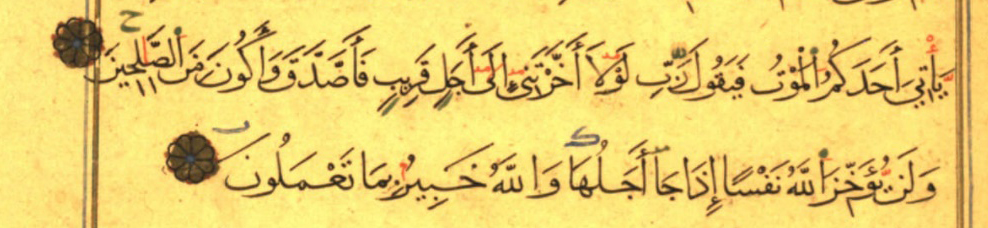 يَأْتِيَ أَحَدَكُمُ الْمَوْتُ فَيَقُولَ رَّبِّ لَوْلَا أَخَّرْتَنِي إِلَى أَجَلٍ قَرِيبٍ فَأَصَّدَّقَ وَأَكُونَ مِنَ الصَّلِحِينَ
وَلَن يُؤَخِّرَ اللَّهُ نَفْسًا إِذَا جَآ أَجَلُهَا وَاللَّهُ خَبِيرٌ بِمَا تَعْمَلُونَ